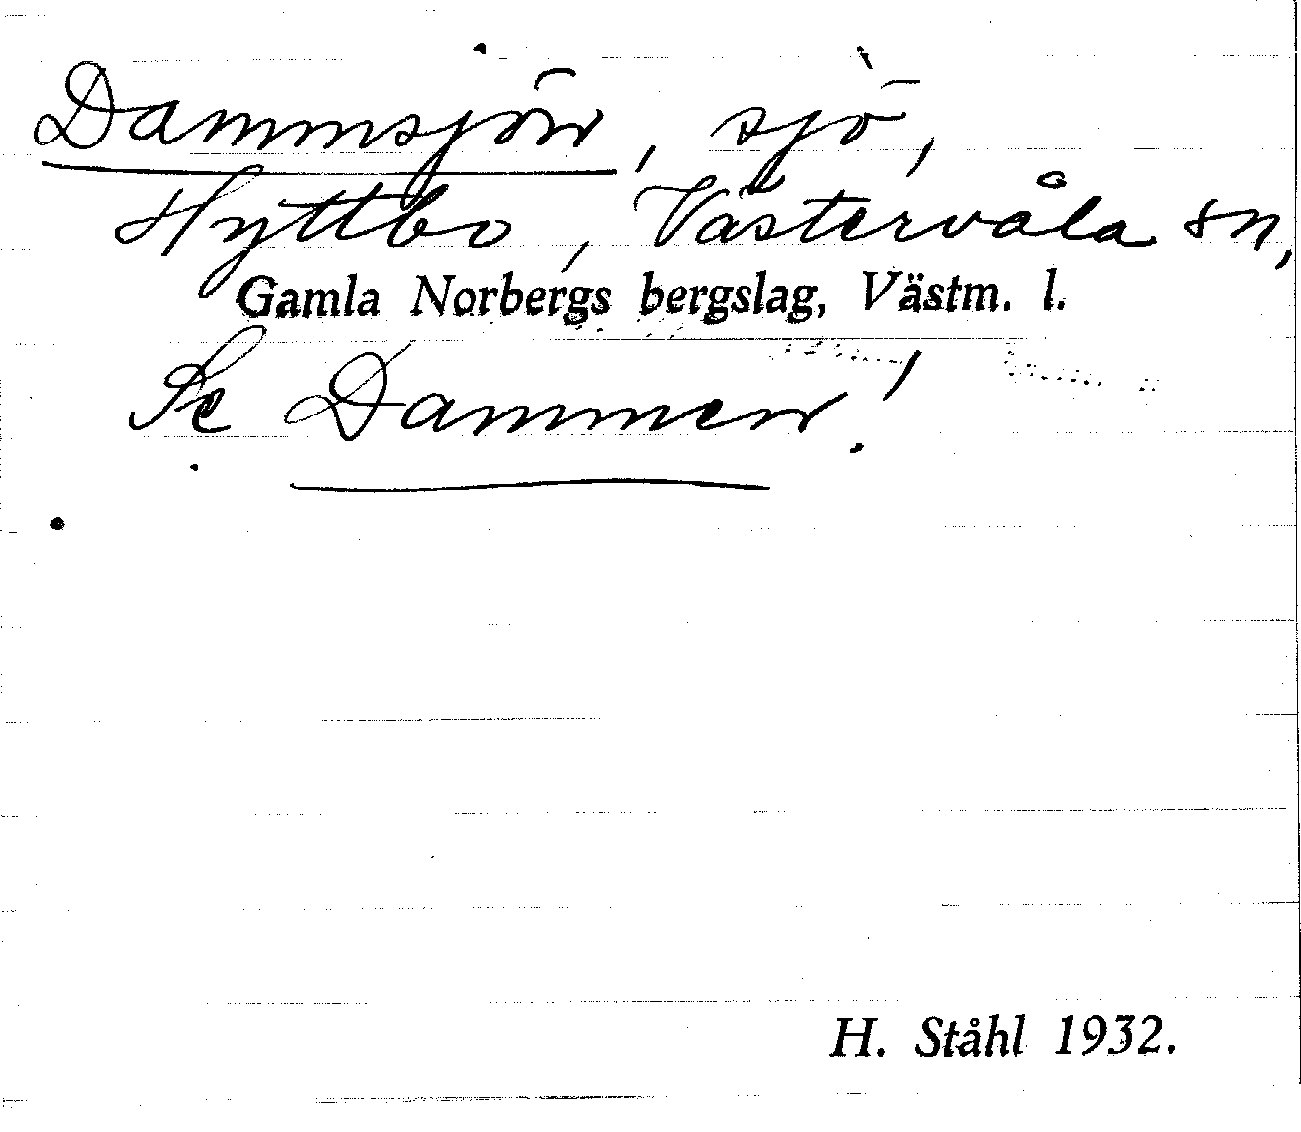 Dammsjön, sjö,
Hyttbo, Västervåla sn,
Gamla Norbergs bergslag, Västm. l.
Se Dammen!
H. Ståhl 1932.